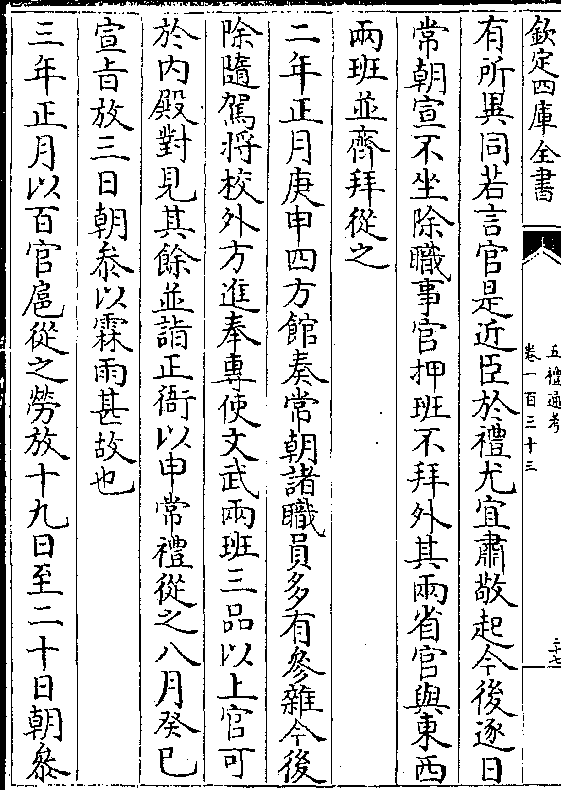 欽定四庫全書
五禮通考
卷一百三十三
二十七
有所異同若言官是近臣於禮尤宜肅敬起今後逐日
常朝宣不坐除職事官押班不拜外其兩省官與東西
兩班並齊拜從之
二年正月庚申四方館奏常朝諸職員多有參雜今後
除隨駕將校外方進奉專使文武兩班三品以上官可
於内殿對見其餘並詣正衙以申常禮從之八月癸巳
宣㫖放三日朝叅以霖雨甚故也
三年正月以百官扈從之勞放十九日至二十日朝叅